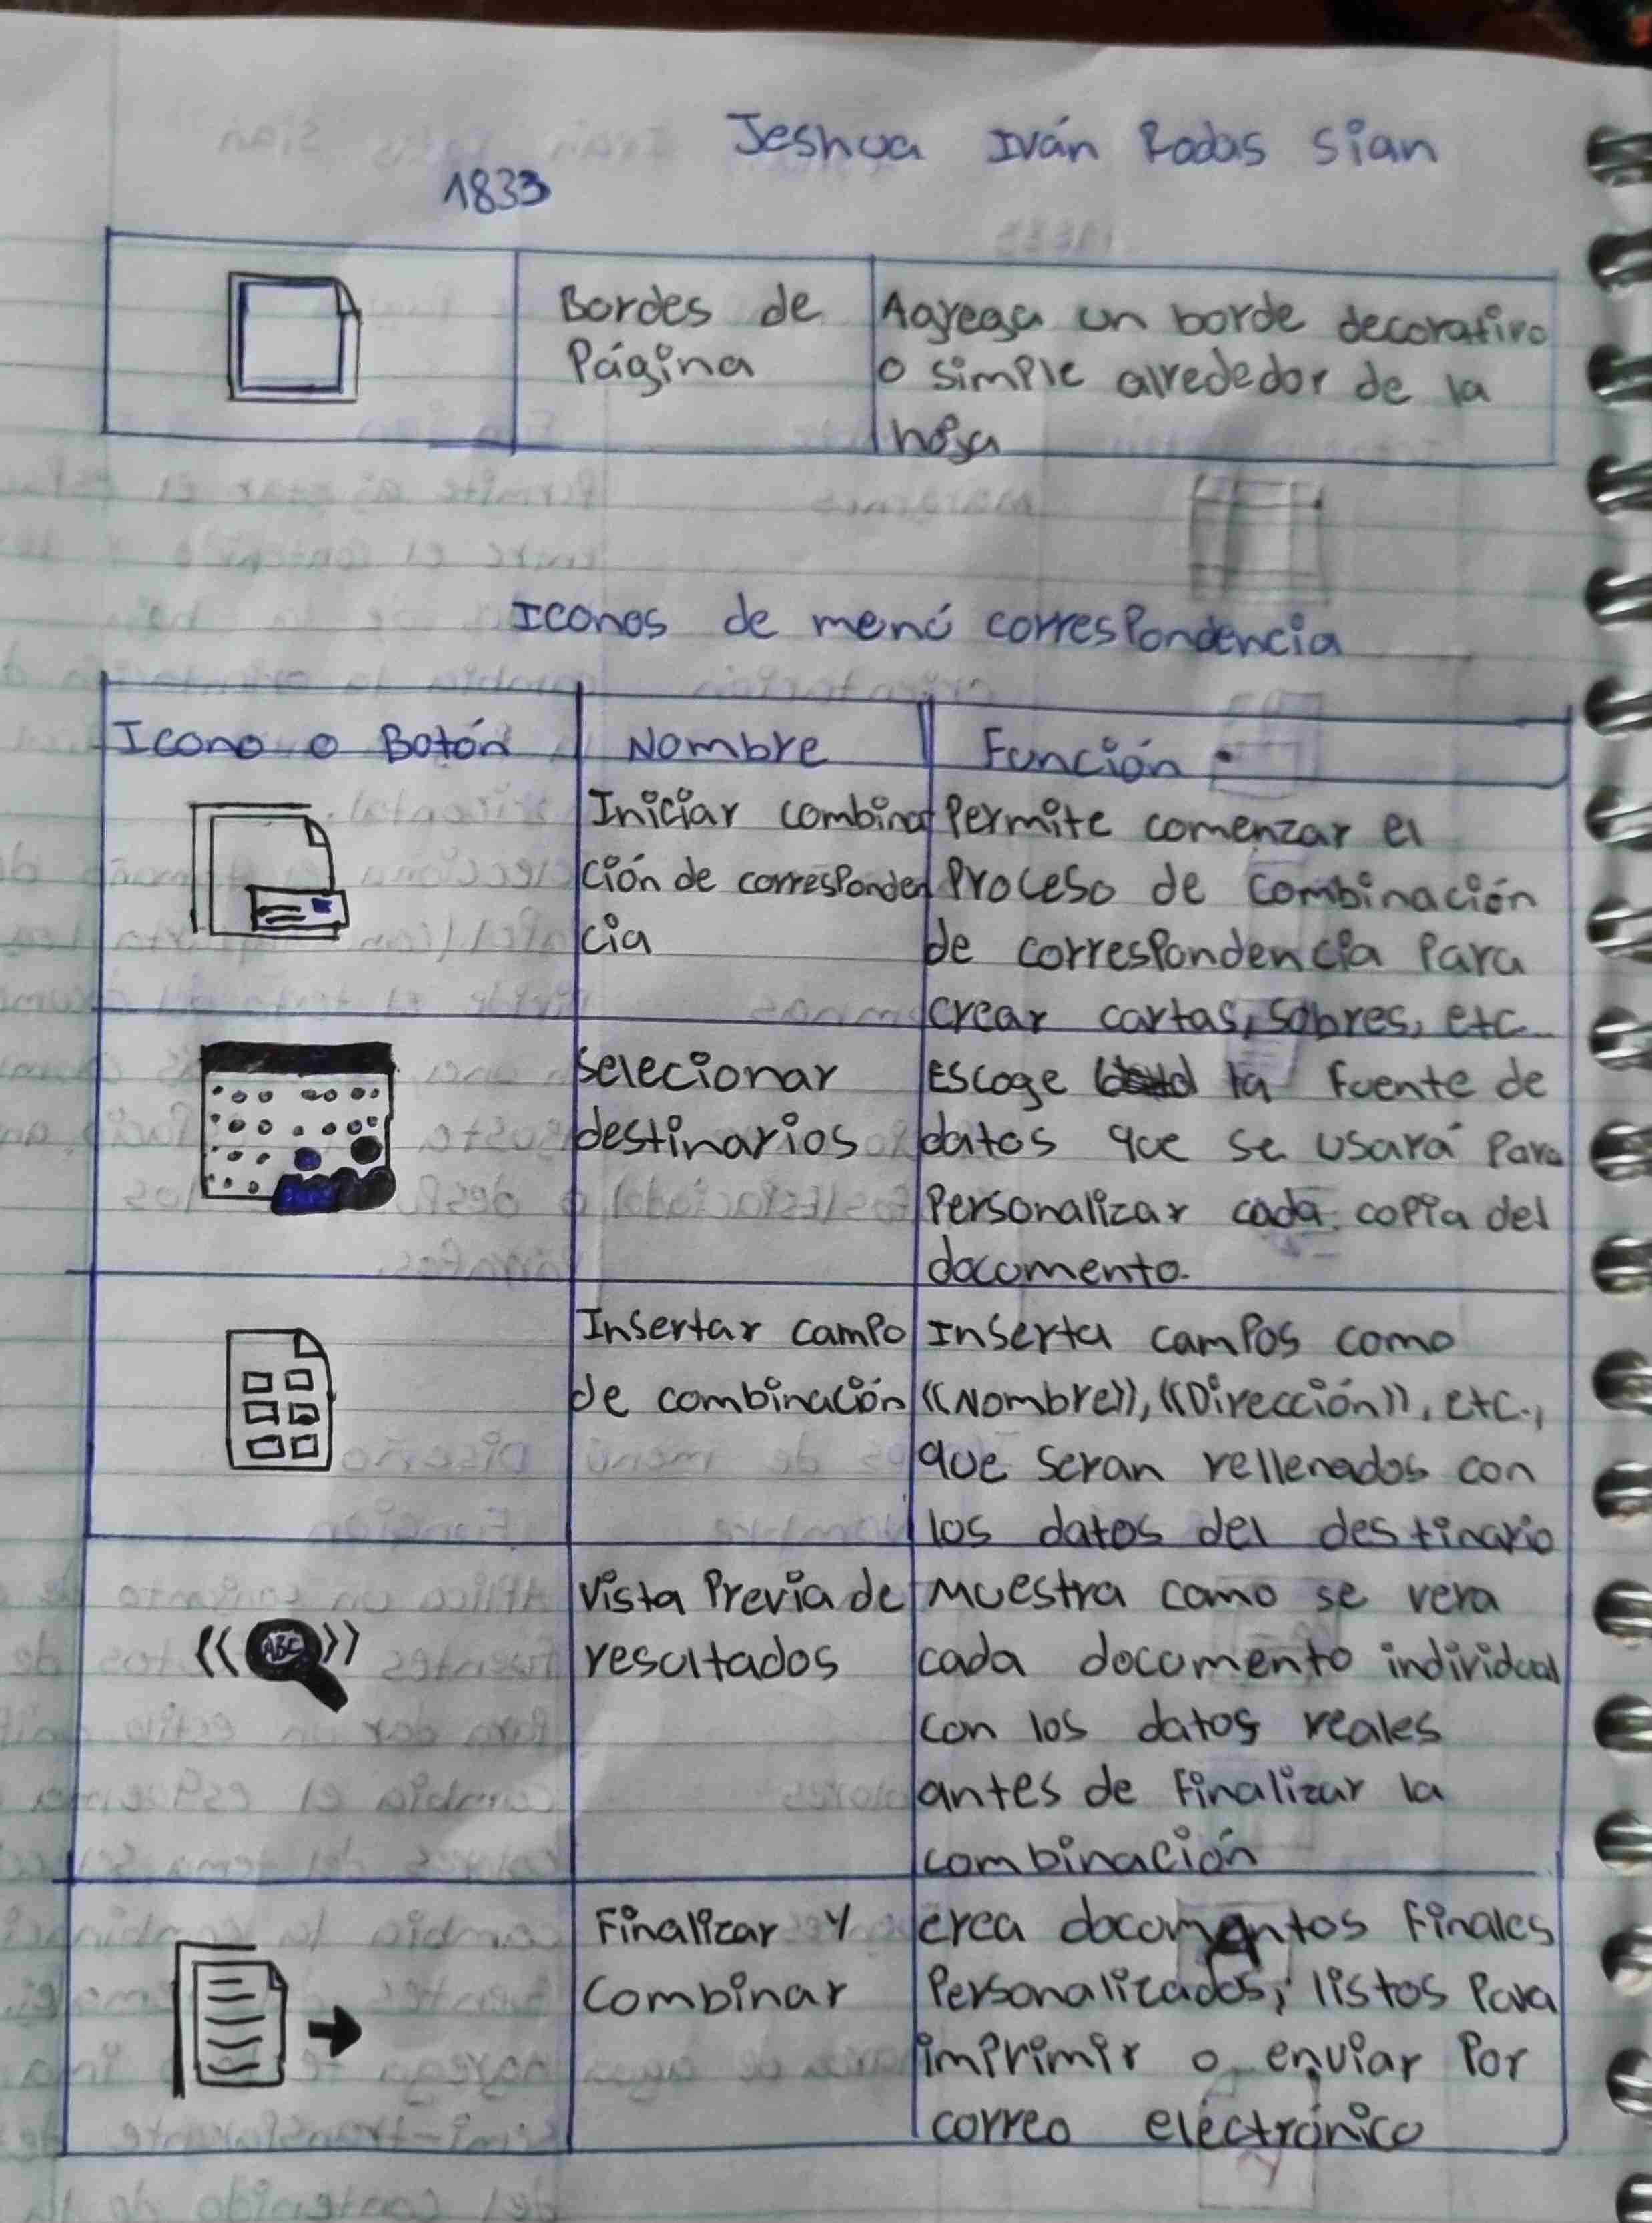 Jeshua Iván Rodas Sian
1833
Bordes de
Página
Agrega un borde decorativo
o simple alrededor de la
hoja
Iconos de menú correspondencia
Icono o Botón
Nombre
Función
Iniciar combina
ción de corresponden
cia
Permite comenzar el
Proceso de combinación
de correspondencia Para
crear cartas, sobres, etc
Selecionar
destinarios
Escoge la fuente de
datos que se usará Para
Personalizar cada copia del
documento.
Insertar campo
de combinación
Inserta campos como
«Nombre», «Dirección», etc.,
que seran rellenados con
los datos del destinario
ABC
Vista Previa de
resultados
Muestra como se vera
cada documento individual
con los datos reales
antes de Finalizar la
combinación
Finalizar y
Combinar
crea documentos Finales
Personalizados, listos Para
imprimir o enviar Por
correo electrónico